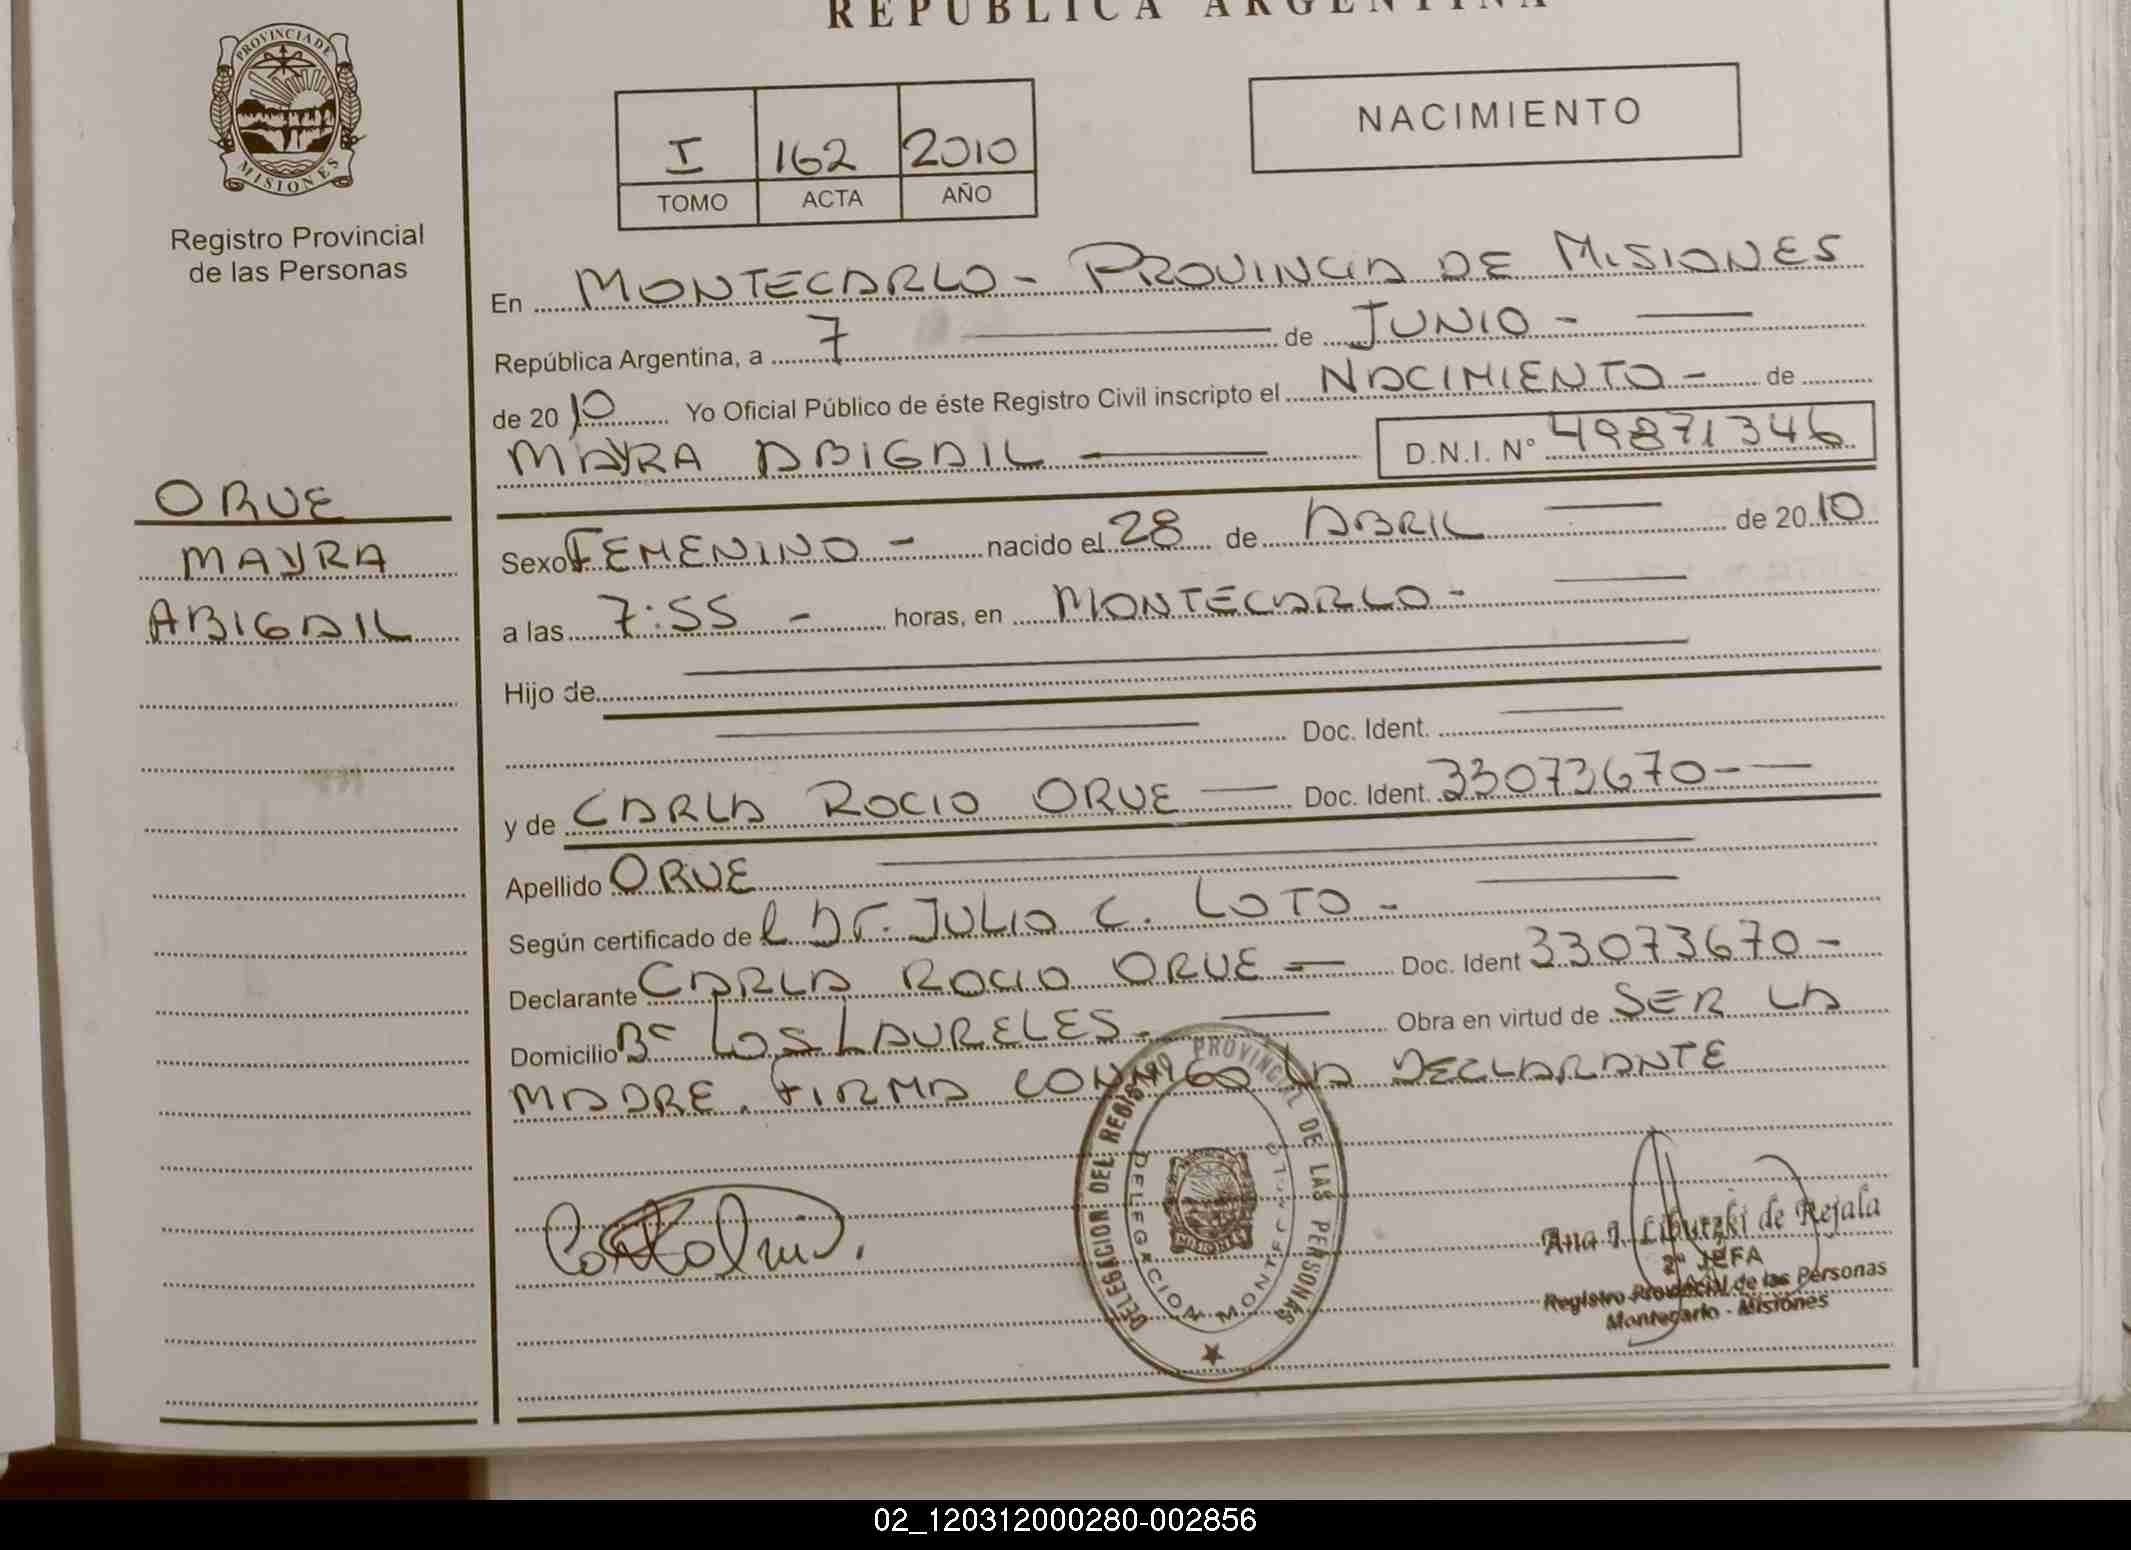 REPUBLICA ARGENTINA
PROVINCIA DE
MISIONES
Registro Provincial
de las Personas
I 162 2010
TOMO ACTA AÑO
NACIMIENTO
En MONTECARLO - PROVINCIA DE MISIONES
República Argentina, a 7 de JUNIO -
de 2010 Yo Oficial Público de éste Registro Civil inscripto el NACIMIENTO - de
MAYRA ABIGAIL D.N.I. N° 49871346
ORUE
MAYRA
ABIGAIL
Sexo FEMENINO - nacido el 28 de ABRIL de 2010
a las 7:55 - horas, en MONTECARLO -
Hijo de
Doc. Ident.
y de CARLA ROCIO ORUE Doc. Ident. 33073670-
Apellido ORUE
Según certificado de l Dr. JULIO C. LOTO -
Declarante CARLA ROCIO ORUE - Doc. Ident 33073670-
Domicilio Bº LOS LAURELES. Obra en virtud de SER LA
MADRE. FIRMA CONMIGO LA DECLARANTE
DELEGACION DEL REGISTRO PROVINCIAL DE LAS PERSONAS
DELEGACION MONTECARLO
MISIONES
Ana I. Liburzki de Rejala
2ª JEFA
Registro Provincial de las Personas
Montecarlo - Misiones
02_120312000280-002856